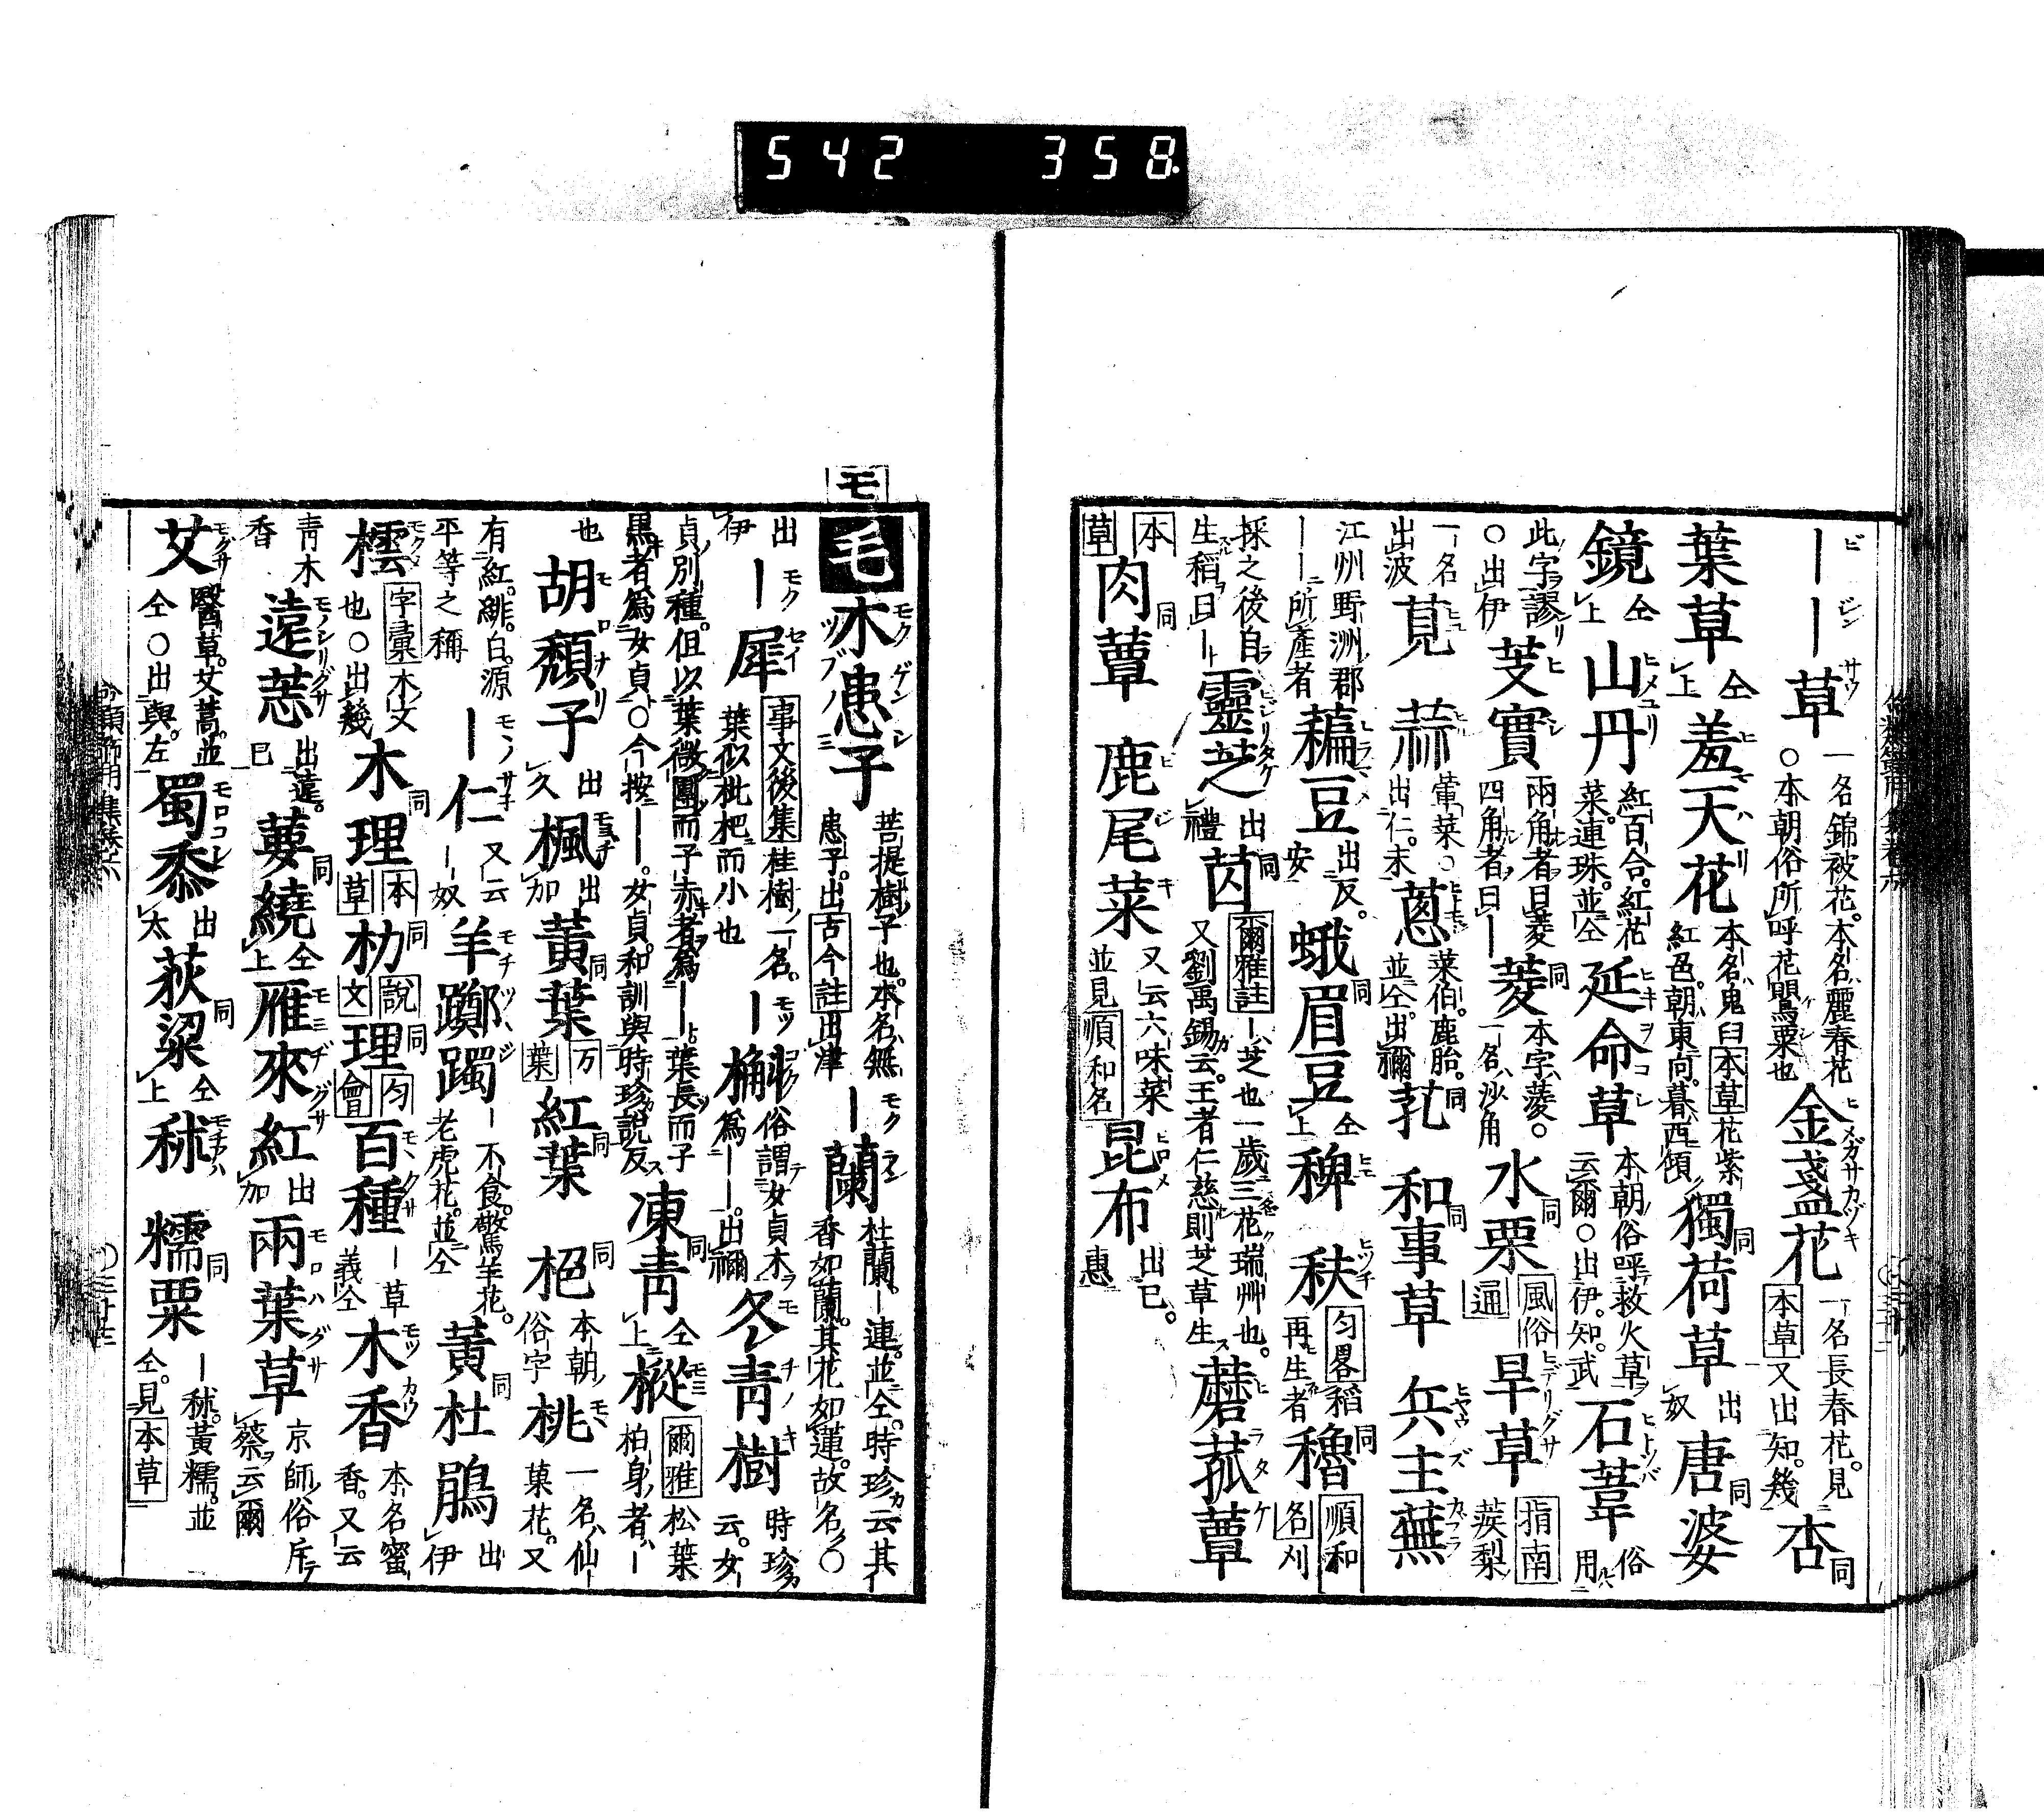 542 358.
――草 一名錦被花。本名麗春花○本朝俗所呼花罌粟也 金盞花 一名長春花。見本草又出知。幾 杏同
葉草 仝上 羞天花 本名鬼臼本草花紫紅色。朝東向。暮西傾 獨荷草同 出奴 唐婆同
鏡 仝上 山丹 紅百合。紅花菜。連珠。並仝 延命草 本朝俗呼救火草云爾○出伊。知。武 石葦 俗用
此字謬○出伊 芰實 兩角者曰菱四角者曰― 菱同 本字蔆。一名沙角 水栗同 風俗通 旱草 指南蒺梨
一名出波 莧 蒜 葷菜○出仁。末 蔥 菜伯。鹿胎。並仝。出禰 芤同 和事草同 兵主 蕪
江州野洲郡――所產者 藊豆 出反。安 蛾眉豆同 仝上 稗 秩 匀畧稻再生者 穭同 順和名刈
採之後自生稻曰― 靈芝 出禮 芮同 爾雅註―芝也一歲三花瑞艸也。又劉禹錫云。王者仁慈則芝草生 蘑菰蕈
本草 肉蕈同 鹿尾菜 又云六味菜並見順和名 昆布 出已。惠
モ
毛 木患子 菩提樹子也。本名無患子。出古今註出津 ―蘭 杜蘭。―連。並仝。時珍云其香如蘭。其花如蓮。故名○
出伊 ―犀 事文後集桂樹一名。葉似枇杷而小也 ―檞 俗謂女貞木爲――。出禰 冬青樹 時珍云。女
貞別種。但以葉微團而子赤者爲―葉長而子黒者爲女貞。○今按――。女貞。和訓與時珍說反 凍青同 仝上 樅 爾雅松葉柏身者―
也 胡頹子 出久 楓 出加 黃葉同 万葉 紅葉同 栬同 本朝俗字 桃 一名仙菓花。又
有紅。緋。白。源平等之稱 ―仁 又云―奴 羊躑躅 ―不食。驚羊花。老虎花。並仝 黃杜鵑同 出伊
橒 字彙木文也○出幾 木理同 本草 朸同 說文 理同 匀會 百種 ―草義仝 木香 本名蜜香。又云
青木香 遠恙 出遠。已 葽繞同 仝上 雁來紅 出加 兩葉草 京師俗斥蔡云爾
艾 醫草。艾蒿。並仝○出與。左 蜀黍 出太 荻粱同 仝上 秫 糯粟同 ―秫。黃糯。並仝。見本草